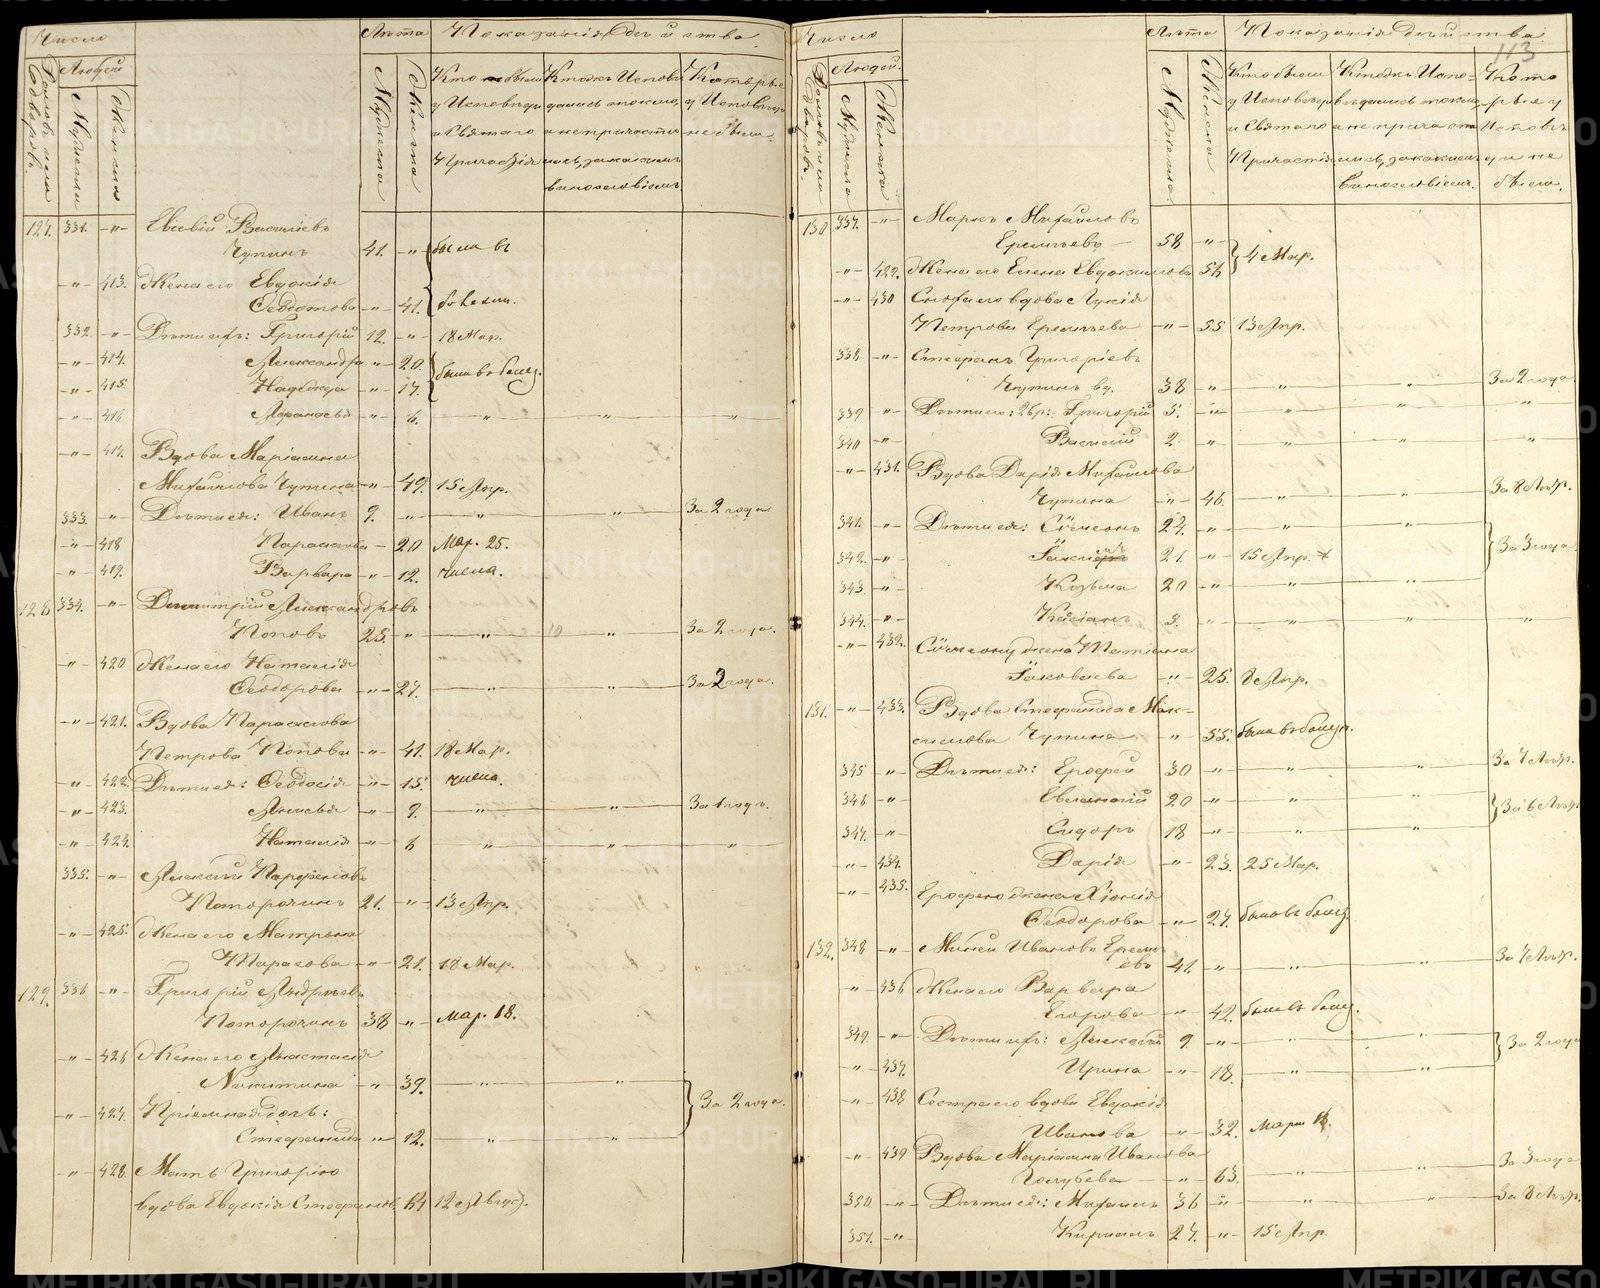 Число
Лѣта
Показанія дѣйства
Людей
Домовъ или дворовъ.
Мужеска
Женска
Мужеска
Женска
Кто были у Исповѣди и Святаго Причастія
Кто исповѣдались токмо, а не причастились, за какимъ винословіемъ
Которые у Исповѣди не были.
127. 331. -„- Евсевій Васильевъ
Чупинъ 41. -„- были въ
-„- 413. Жена его Евдокія
Ѳеодотова -„- 41. болезни.
332. -„- Дѣти ихъ: Григорій 12. -„- 18 Мар.
-„- 414. Александра -„- 20. были въ болез.
-„- 415. Надежда -„- 17.
-„- 416 Афанасья -„- 6. „ „ „
-„- 417. Вдова Маріамна
Михаилова Чупина -„- 49. 15 Апр.
333. -„- Дѣти ея: Иванъ 9. -„- „ „ За 2 года
-„- 418 Параскева -„- 20 Мар. 25.
-„- 419. Варвара -„- 12. числа.
128 334. -„- Димитрій Александровъ
Поповъ 25. -„- „ „ За 2 года.
-„- 420 Жена его Наталія
Ѳеодорова -„- 27. „ „ За 2 года.
-„- 421. Вдова Параскева
Петрова Попова -„- 41. 18 Мар.
-„- 422. Дѣти ея: Ѳеодосія -„- 15. числа.
-„- 423. Анисья -„- 9. „ „ За 1 годъ.
-„- 424. Наталія -„- 6 „ „ „
335. -„- Алексѣй Парфеновъ
Поторочинъ 21. -„- 13 Апр.
-„- 425. Жена его Матрона
Тарасова -„- 21. 18 Мар.
129. 336 -„- Григорій Андреевъ
Поторочинъ 38 -„- Мар. 18.
-„- 426 Жена его Анастасія
Никитина -„- 39. „ „ За 2 года.
-„- 427. Пріемная дочь:
Стефанида -„- 12. „ „
-„- 428. Мать Григорію
вдова Евдокія Стефанова 64 12 Август.
113
Число
Лѣта
Показанія дѣйства
Людей
Домовъ или дворовъ.
Мужеска
Женска
Мужеска
Женска
Кто были у Исповѣди и Святаго Причастія
Кто исповѣдались токмо, а не причастились, за какимъ винословіемъ.
Которые у Исповѣди не были.
130 337. -„- Маркъ Михаиловъ
Еремѣевъ 58 -„- 4 Мар.
-„- 429. Жена его Елена Евдокимова 56
-„- 430 Сноха его вдова Лукія
Петрова Еремѣева -„- 55 13 Апр.
338 -„- Стефанъ Григоріевъ
Чупинъ вд. 38 -„- „ „ За 2 года.
339 -„- Дѣти его: 2 бр: Григорій 5. -„- „ „ „
340 -„- Василій 2. -„- „ „ „
-„- 431. Вдова Дарія Михаилова
Чупина -„- 46. „ „ За 8 лѣт.
341. -„- Дѣти ея: Сѵмеонъ 24. -„- „ „ За 3 года
342. -„- 21. -„- 15 Апр. +
343. -„- Козьма 20 -„- „ „
344. -„- Касіанъ 3. -„- „ „ „
-„- 432. Сѵмеону жена Татіана
Іаковлева -„- 25. 8 Апр.
131. -„- 433. Вдова Стефанида Мак-
симова Чупина. -„- 55. была въ болез.
345 -„- Дѣти ея: Ерофей 30 -„- „ „ За 7 лѣт.
346 -„- 20 -„- „ „ За 6 лѣт.
347. -„- Сидоръ 18 -„- „ „
-„- 434. Дарія -„- 23. 25 Мар.
-„- 435. Ерофею жена Хіонія
Ѳеодорова -„- 27. была въ болез.
132. 348 -„- Миней Ивановъ Еремѣ-
евъ 41. -„- „ „ За 7 лѣт.
-„- 436 Жена его Варвара
Егорова -„- 42. была въ болез.
349 -„- Дѣти ихъ: Алексѣй 9. -„- „ „ За 2 года
-„- 437. Ирина -„- 18. „ „
-„- 438 Сестра его вдова Евдокія
Иванова -„- 32. Март 18.
-„- 439 Вдова Маріамна Иванова
Голубева -„- 63. „ „ За 3 года
350 -„- Дѣти ея: Михаилъ 36 -„- „ „ За 8 лѣт.
351. -„- Кириллъ 27. -„- 15 Апр.
METRIKI.GASO-URAL.RU